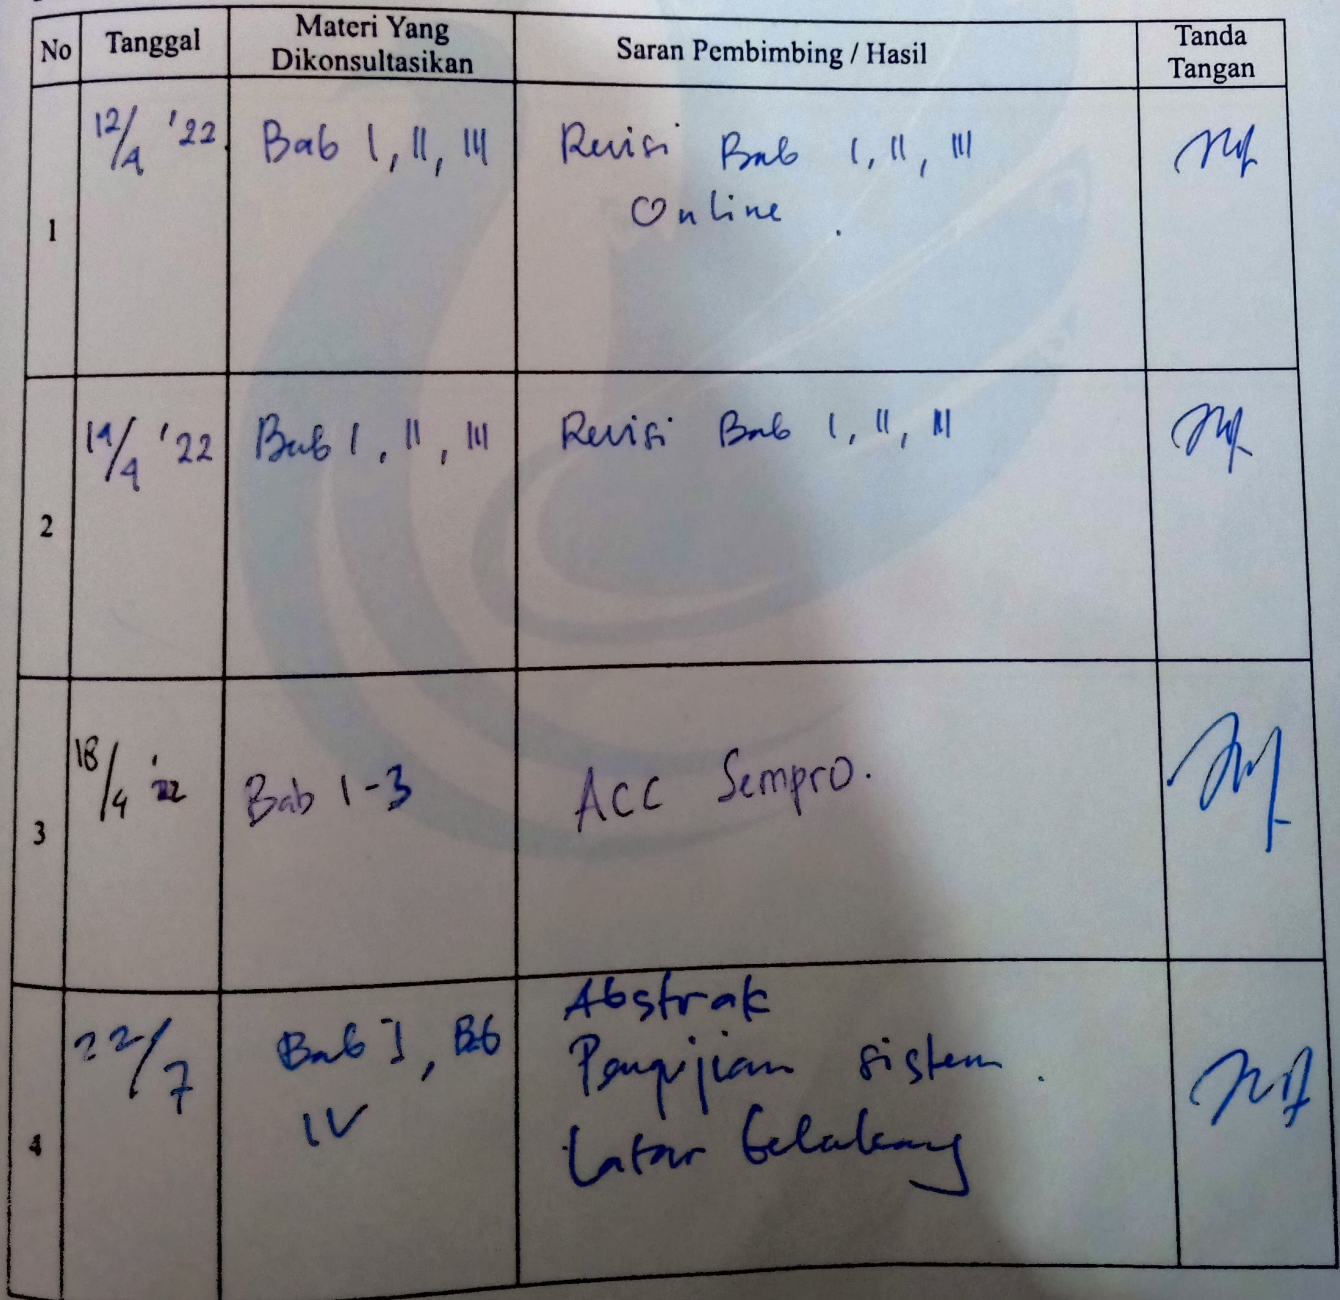 No Tanggal Materi Yang Dikonsultasikan Saran Pembimbing / Hasil Tanda Tangan
1 12/4 '22 Bab I, II, III Revisi Bab I, II, III
Online.
2 14/4 '22 Bab I, II, III Revisi Bab I, II, III
3 18/4 '22 Bab 1-3 ACC Sempro.
Abstrak
22/7 Bab I, Bab Pengujian sistem.
4 IV Latar belakang